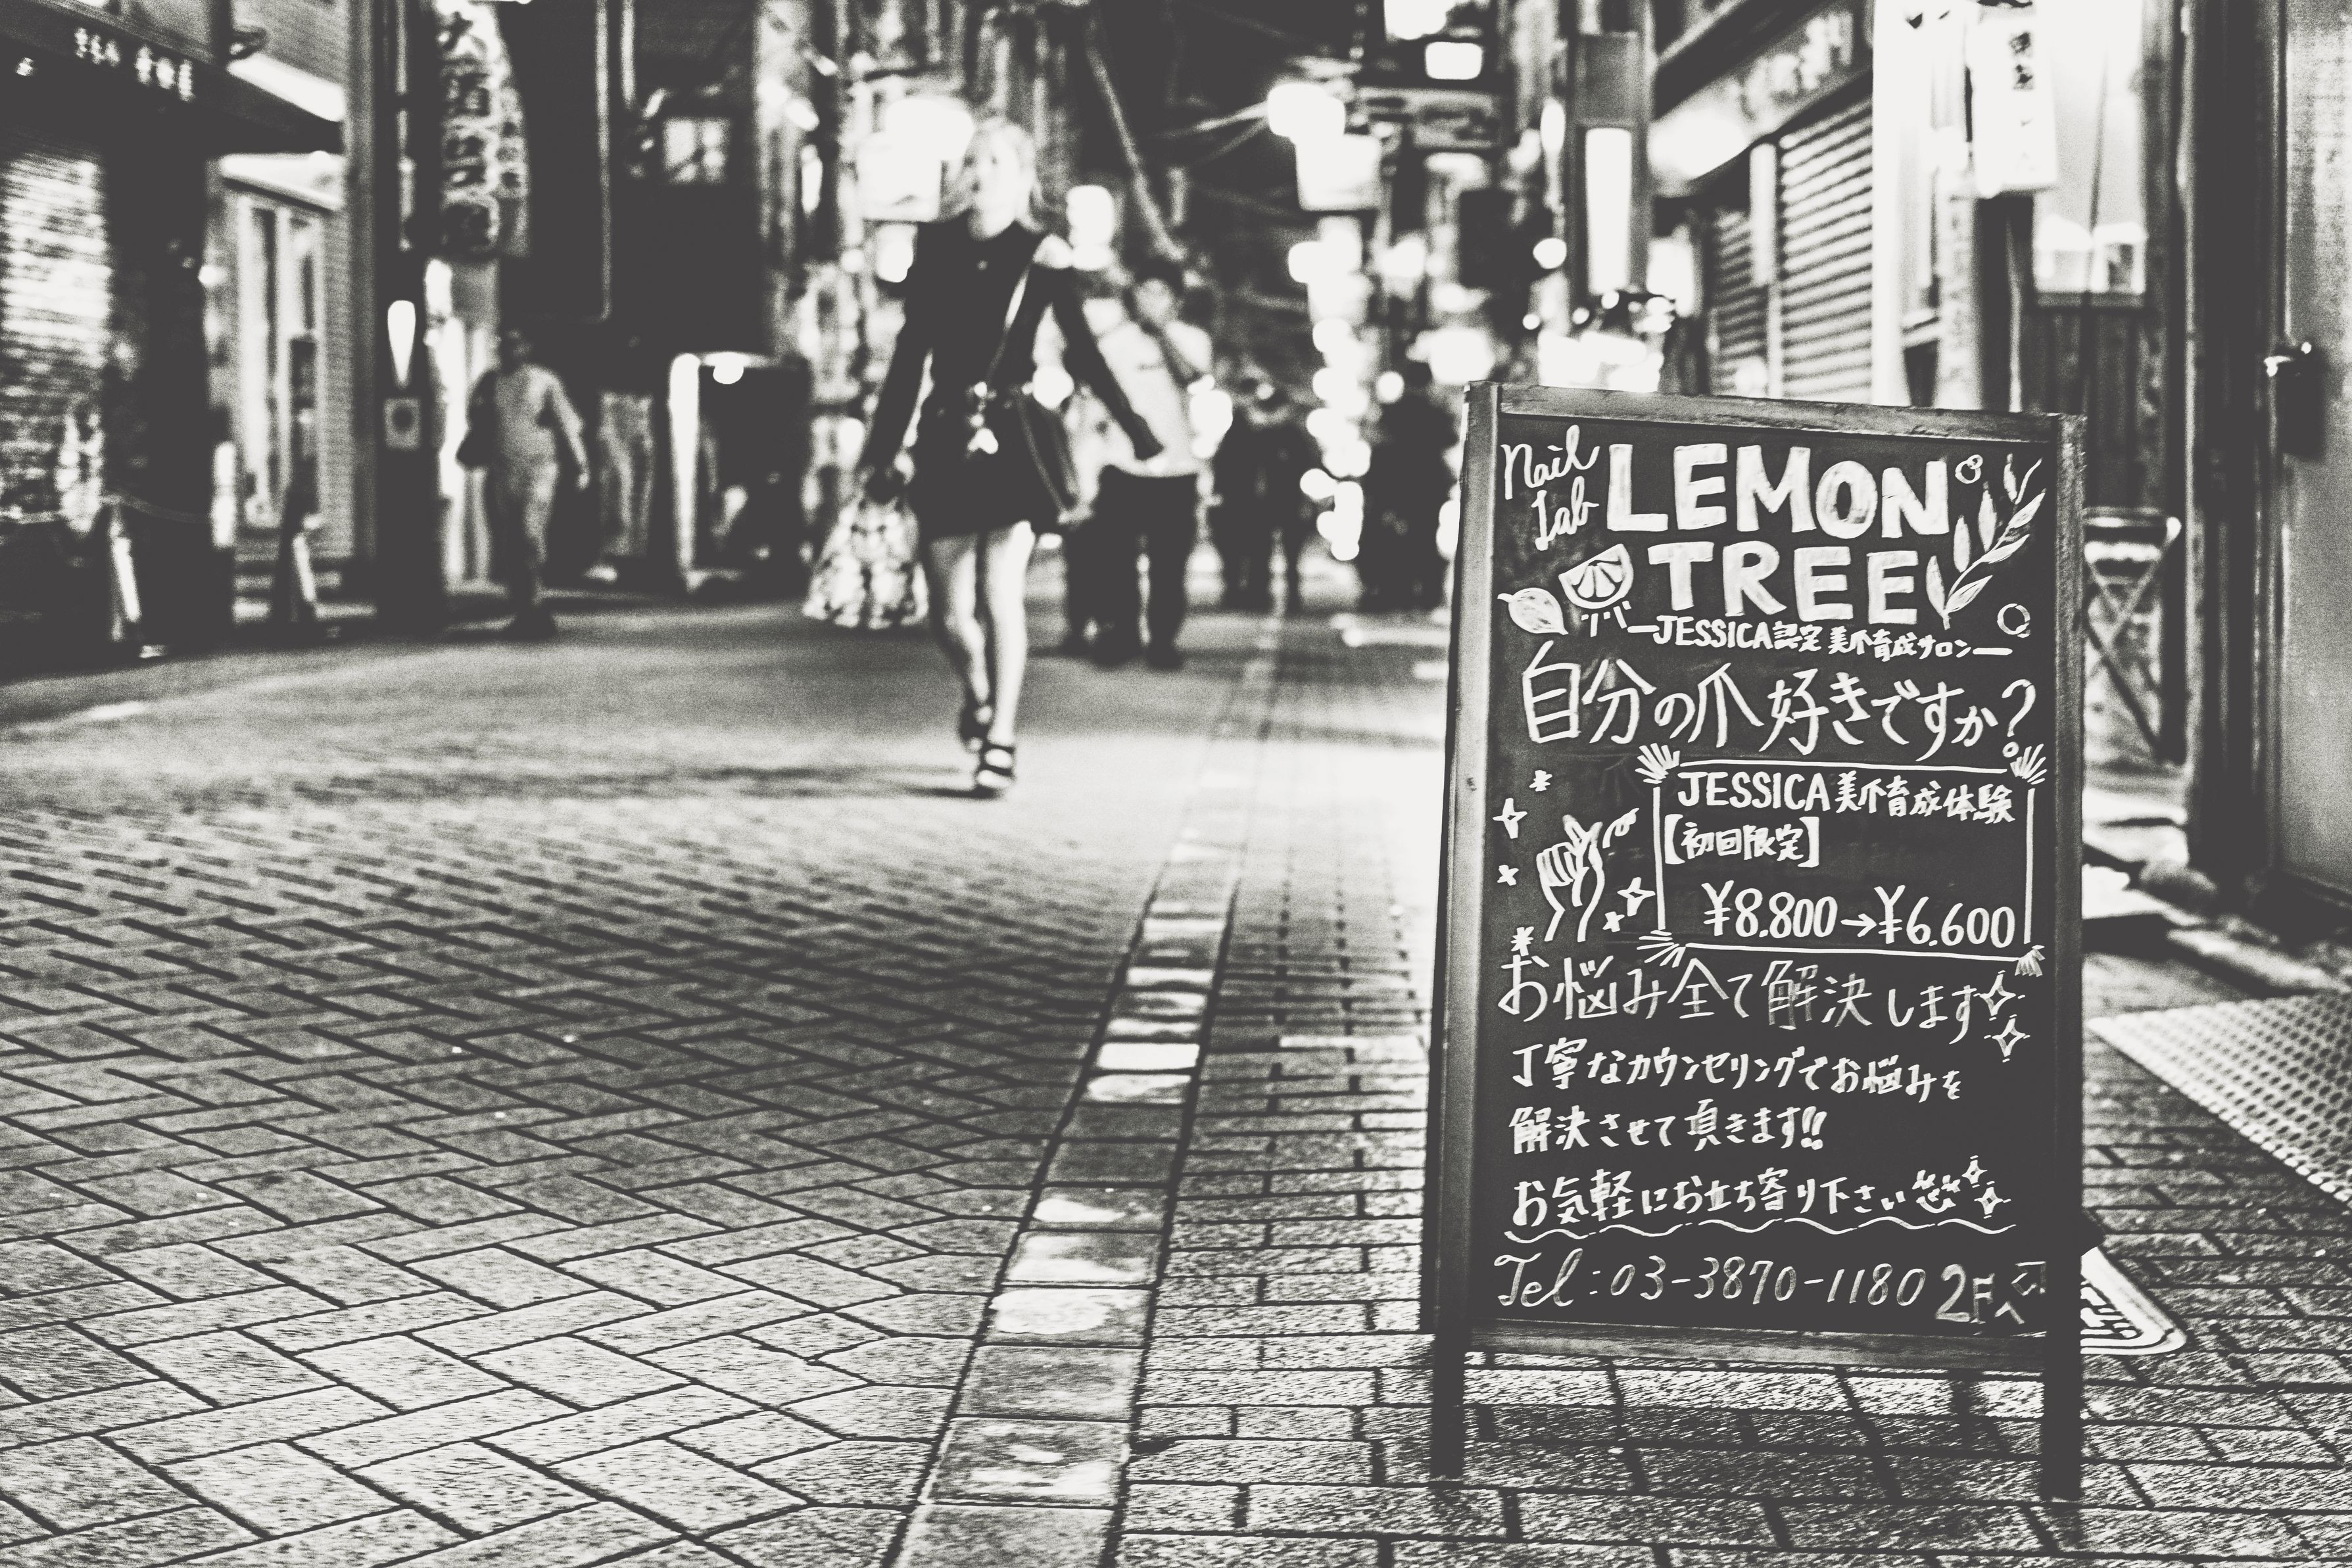 Nail Lab
LEMON
TREE
JESSICA認定 美爪育成サロン
自分の爪好きですか?
JESSICA美爪育成体験
【初回限定】
¥8.800→¥6.600
お悩み全て解決します
丁寧なカウンセリングでお悩みを
解決させて頂きます!!
お気軽にお立ち寄り下さい
Tel:03-3870-1180 2Fへ